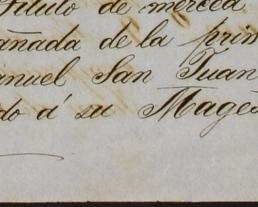 Titulo de merced
añada de la prim
anuel San Juan
do á su Mages